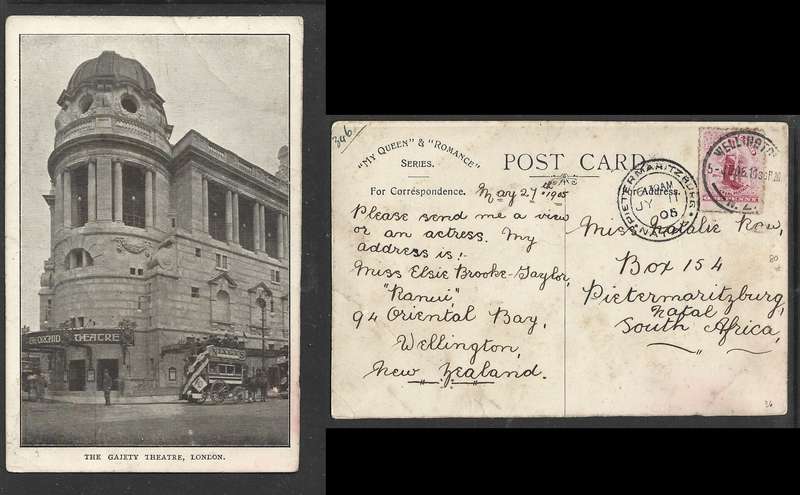 THEATRE
THE GAIETY THEATRE, LONDON.
346
"MY QUEEN" & "ROMANCE"
SERIES.
POST CARD
For Correspondence.
For Address.
WELLINGTON
N.Z.
PIETERMARITZBURG
JY 11
05
NATAL
May 27th 1905
Please send me a view
or an actress. My
address is:-
Miss Elsie Brooke-Taylor,
"Ranui,"
94 Oriental Bay,
Wellington,
New Zealand.
Miss Natalie Row,
Box 154
Pietermaritzburg,
Natal
South Africa,
80
36